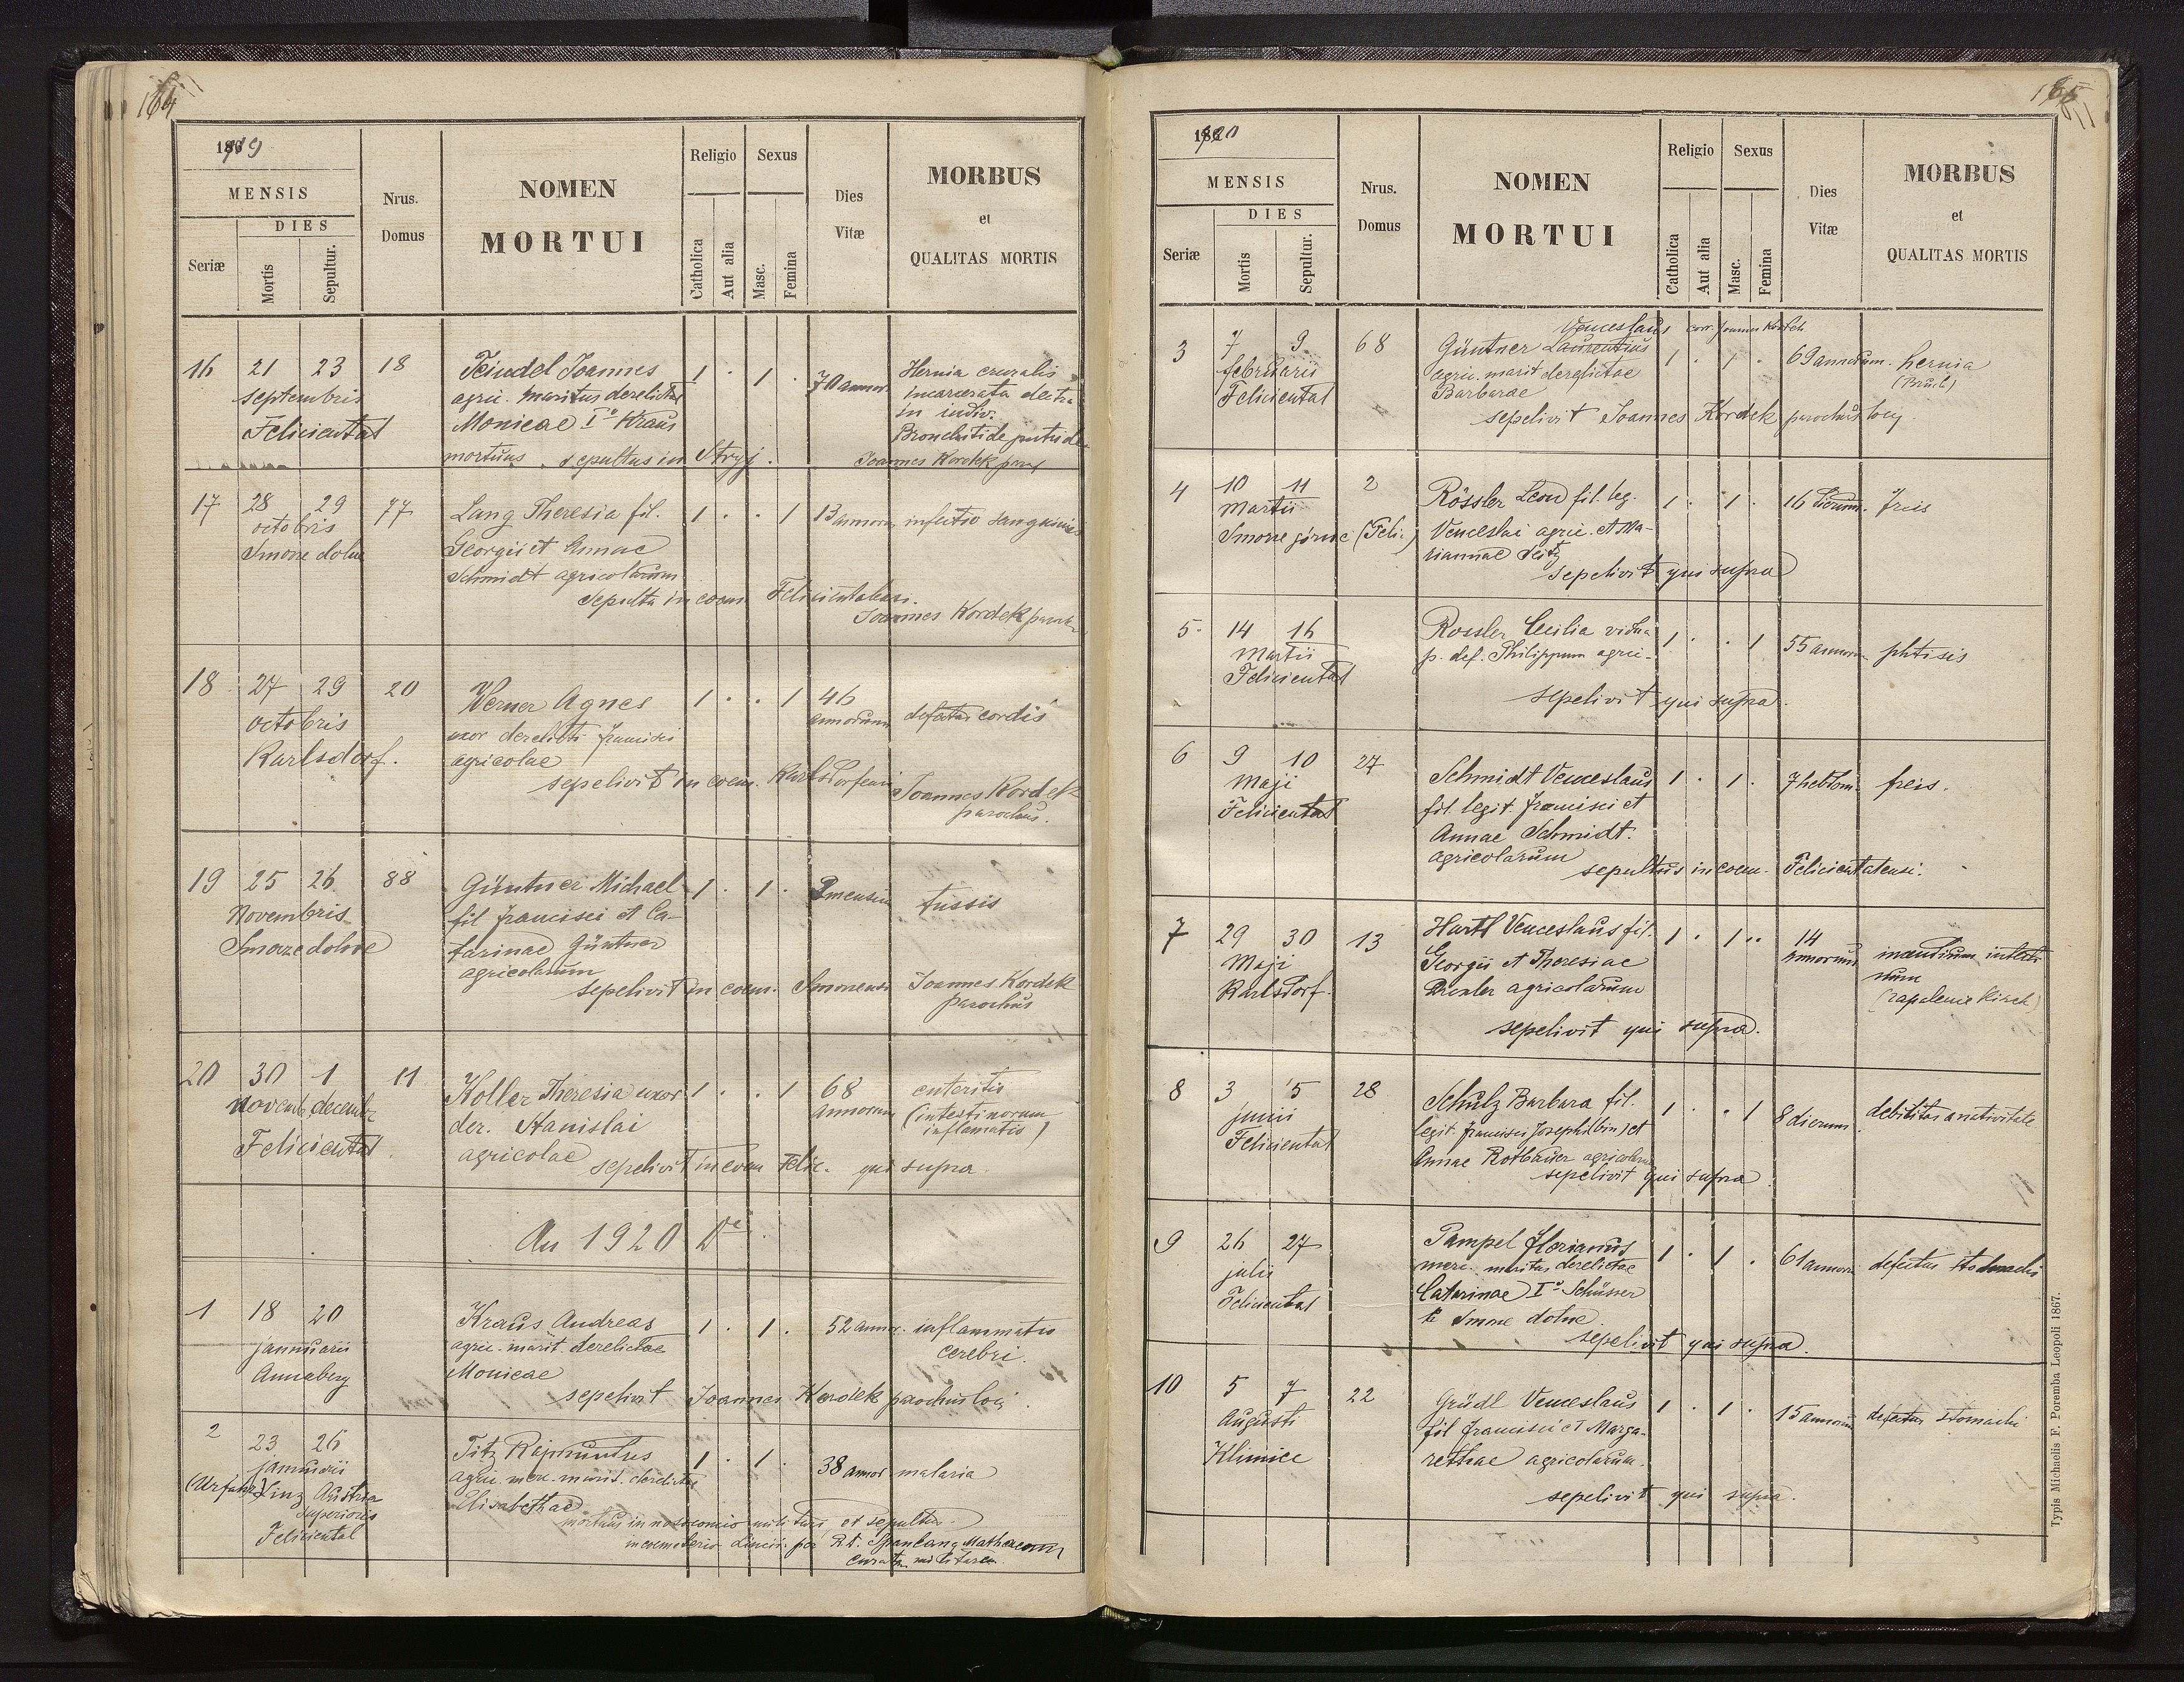 164
1919
MENSIS
DIES
Seriæ
Mortis
Sepultur.
Nrus.
Domus
NOMEN
MORTUI
Religio
Sexus
Catholica
Aut alia
Masc.
Femina
Dies
Vitæ
MORBUS
et
QUALITAS MORTIS
16 21 23 18 Feindel Joannes 1 · 1 · 70 annor. Hernia cruralis
septembris agric. maritus derelictae incarcerata dextra
Felicientat Monicae I° Kraus in indiv.
Bronchitide putrida
mortuus sepultus in Stryj. Joannes Kordek par
17 28 29 77 Lang Theresia fil. 1 · · 1 13 annorum infectio sanguinis
octobris Georgii et Annae
Smorze dolne Schmidt agricolarum
Sepulta in coem. Felicientalensi.
Joannes Kordek paroch
18 27 29 20 Werner Agnes 1 · · 1 46
octobris uxor derelicti Francisci annorum defectus cordis
Karlsdorf. agricolae
sepelivit in coem. Karlsdorfensi Joannes Kordek
parochus.
19 25 26 88 Güntner Michael 1 · 1 · 2 mensium tussis
Novembris fil Francisci et Ca-
Smorze dolne tarinae Güntner
agricolarum
sepelivit in coem. Smorzensi Joannes Kordek
parochus
20 30 1 11 Koller Theresia uxor 1 · · 1 68 enteritis
Novemb decembr der. Stanislai annorum (intestinorum
inflamatio)
Felicientat. agricolae
sepelivit in coem Felic. qui supra.
An 1920 D
1 18 20 Kraus Andreas 1 · 1 · 52 annor. inflammatio
januarii agric. marit. derelictae cerebri.
Annaberg Monicae
sepelivit Joannes Kordek parochus loci.
2 23 26 Titz Rajmundus 1 · 1 · 38 annor malaria
januarii agric. merc. marit. derelictae
(Urfahr) Linz Austria Elisabethae
superioris
Feliciental mortuus in nosocomio militari et sepultus
in coemeterio Linciis per Rt. Spanlang Mathaeum
curatum militarem.
165
1920
MENSIS
DIES
Seriæ
Mortis
Sepultur.
Nrus.
Domus
NOMEN
MORTUI
Religio
Sexus
Catholica
Aut alia
Masc.
Femina
Dies
Vitæ
MORBUS
et
QUALITAS MORTIS
Venceslaus corr. Joannes Kordek
3 7 9 68 Güntner Laurentius 1 · 1 · 69 annorum. hernia
februarii agric. marit derelictae (Bruch)
Felicientat Barbarae
sepelivit Joannes Kordek parochus loci.
4 10 11 2 Rössler Leon fil. leg. 1 · 1 · 16 dierum. freis
Martii Venceslai agric. et Ma-
Smorze górne (Feli.) riannae Seitz
sepelivit qui supra
5 14 16 Rossler Cecilia vidua 1 · · 1 55 annorum phtisis
Martii p. def. Philippum agric.
Felicientat
sepelivit qui supra.
6 9 10 27 Schmidt Venceslaus 1 · 1 · 7 hebdom. freis.
Maji fil. legit. Francisci et
Felicientat Annae Schmidt.
agricolarum
sepultus in coem. Felicientatensi.
7 29 30 13 Hartl Venceslaus fil. 1 · 1 · · 14
Maji Georgii et Theresiae annorum incendium intesti
Karlsdorf. Drexler agricolarum num
(zapalenie kiszek)
sepelivit qui supra.
8 3 5 28 Schulz Barbara fil. 1 · · 1 8 dierum debilitas a nativitate
junii legit. Francisci Josephi (bin) et
Felicientat Annae Rotbauer agricolarum
sepelivit qui supra.
9 26 27 Pampel Florianus 1 · 1 · 61 annorum defectus stomachi
julii merc. maritus derelictae
Felicientat Catarinae I° Schüsser
te Smorze dolne.
sepelivit qui supra.
10 5 7 22 Grüdl Venceslaus 1 · 1 · 15 annorum defectus stomachi
Augusti fil Francisci et Marga-
Klimiec rethae agricolarum.
sepelivit qui supra.
Typis Michaelis F. Poremba Leopoli 1867.